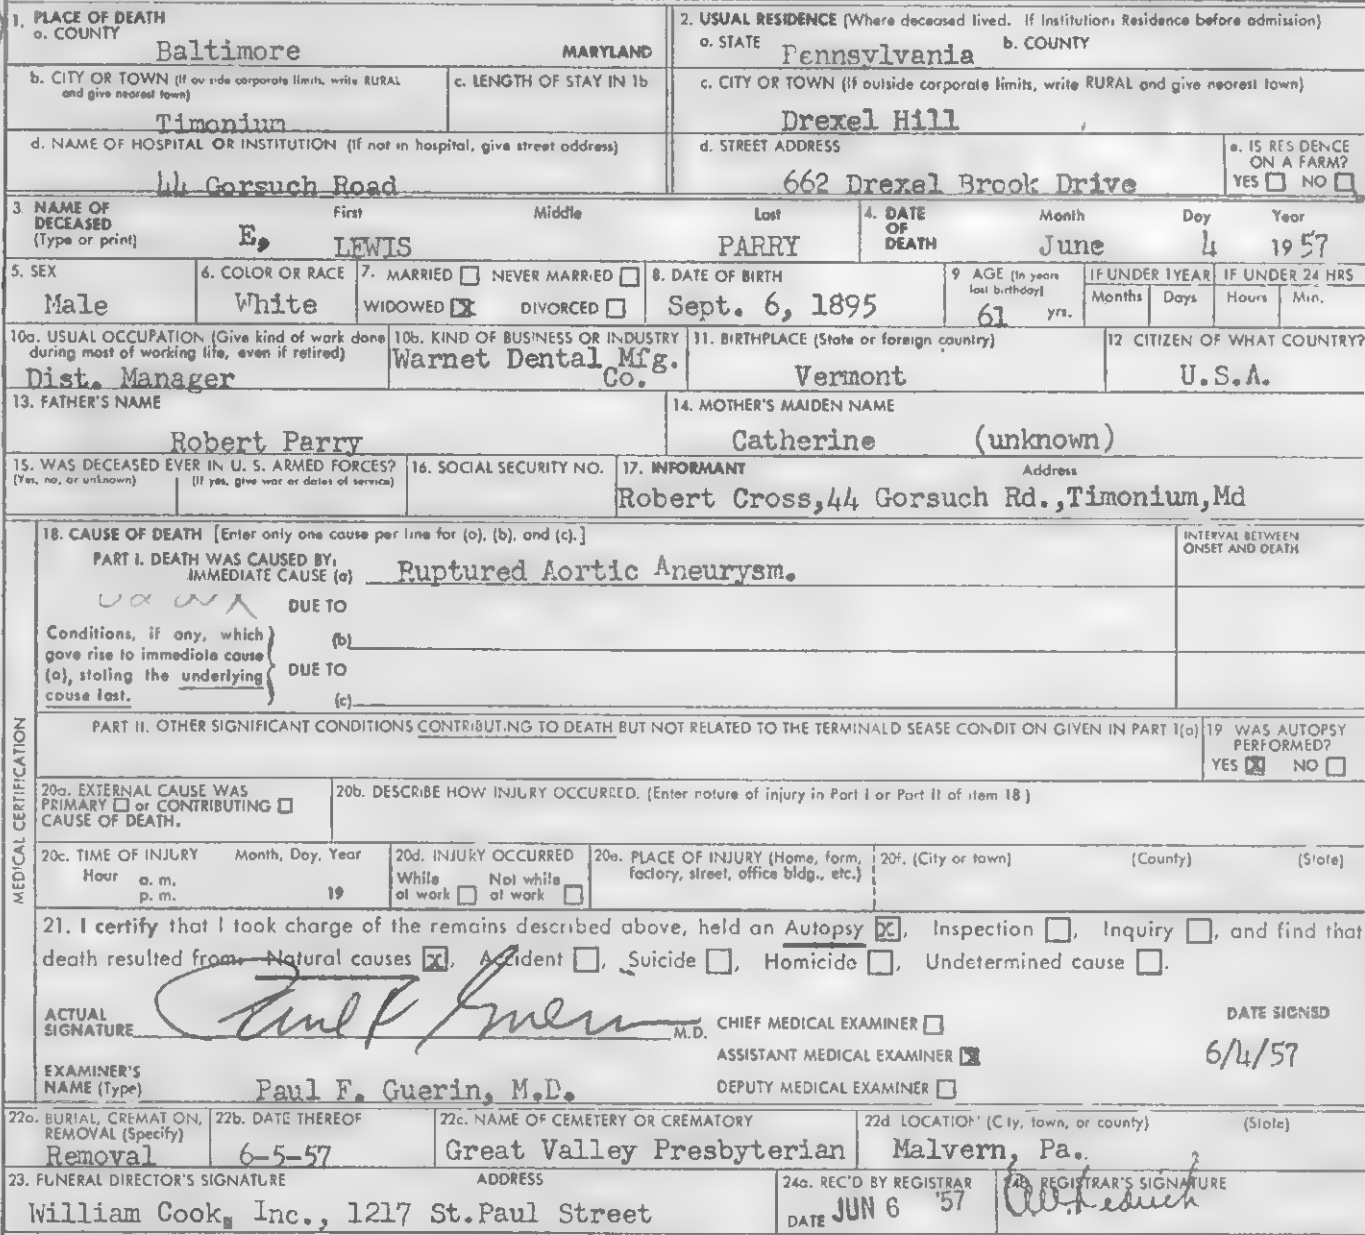 1. PLACE OF DEATH
a. COUNTY
Baltimore MARYLAND
2. USUAL RESIDENCE (Where deceased lived. If Institution: Residence before admission)
a. STATE Pennsylvania b. COUNTY
b. CITY OR TOWN (If outside corporate limits, write RURAL and give nearest town)
Timonium
c. LENGTH OF STAY IN 1b
c. CITY OR TOWN (If outside corporate limits, write RURAL and give nearest town)
Drexel Hill
d. NAME OF HOSPITAL OR INSTITUTION (If not in hospital, give street address)
44 Gorsuch Road
d. STREET ADDRESS
662 Drexel Brook Drive
e. IS RESIDENCE
ON A FARM?
YES NO
3. NAME OF
DECEASED
(Type or print)
First Middle Last
E, LEWIS PARRY
4. DATE
OF
DEATH
Month Day Year
June 4 1957
5. SEX
Male
6. COLOR OR RACE
White
7. MARRIED NEVER MARRIED
WIDOWED X DIVORCED
8. DATE OF BIRTH
Sept. 6, 1895
9 AGE (In years
last birthday)
61 yrs.
IF UNDER 1 YEAR
Months Days
IF UNDER 24 HRS
Hours Min.
10a. USUAL OCCUPATION (Give kind of work done
during most of working life, even if retired)
Dist. Manager
10b. KIND OF BUSINESS OR INDUSTRY
Warnet Dental Mfg.
Co.
11. BIRTHPLACE (State or foreign country)
Vermont
12 CITIZEN OF WHAT COUNTRY?
U.S.A.
13. FATHER'S NAME
Robert Parry
14. MOTHER'S MAIDEN NAME
Catherine (unknown)
15. WAS DECEASED EVER IN U. S. ARMED FORCES?
(Yes, no, or unknown) (If yes, give war or dates of service)
16. SOCIAL SECURITY NO.
17. INFORMANT Address
Robert Cross,44 Gorsuch Rd.,Timonium,Md
MEDICAL CERTIFICATION
18. CAUSE OF DEATH [Enter only one cause per line for (a), (b), and (c).]
PART I. DEATH WAS CAUSED BY:
IMMEDIATE CAUSE (a) Ruptured Aortic Aneurysm.
INTERVAL BETWEEN
ONSET AND DEATH
DUE TO
Conditions, if any, which
gave rise to immediate cause
(a), stating the underlying
cause last.
(b)
DUE TO
(c)
PART II. OTHER SIGNIFICANT CONDITIONS CONTRIBUTING TO DEATH BUT NOT RELATED TO THE TERMINAL DISEASE CONDITION GIVEN IN PART I(a)
19 WAS AUTOPSY
PERFORMED?
YES X NO
20a. EXTERNAL CAUSE WAS
PRIMARY or CONTRIBUTING
CAUSE OF DEATH.
20b. DESCRIBE HOW INJURY OCCURRED. (Enter nature of injury in Part I or Part II of item 18)
20c. TIME OF INJURY Month, Day, Year
Hour a. m.
p. m. 19
20d. INJURY OCCURRED
While Not while
at work at work
20e. PLACE OF INJURY (Home, farm,
factory, street, office bldg., etc.)
20f. (City or town) (County) (State)
21. I certify that I took charge of the remains described above, held an Autopsy X, Inspection , Inquiry , and find that
death resulted from: Natural causes X, Accident , Suicide , Homicide , Undetermined cause .
ACTUAL
SIGNATURE Paul F Guerin M.D.
CHIEF MEDICAL EXAMINER
ASSISTANT MEDICAL EXAMINER X
DEPUTY MEDICAL EXAMINER
DATE SIGNED
6/4/57
EXAMINER'S
NAME (Type) Paul F. Guerin, M.D.
22a. BURIAL, CREMATION,
REMOVAL (Specify)
Removal
22b. DATE THEREOF
6-5-57
22c. NAME OF CEMETERY OR CREMATORY
Great Valley Presbyterian
22d LOCATION (City, town, or county) (State)
Malvern, Pa.
23. FUNERAL DIRECTOR'S SIGNATURE ADDRESS
William Cook, Inc., 1217 St.Paul Street
24a. REC'D BY REGISTRAR
DATE JUN 6 '57
24b. REGISTRAR'S SIGNATURE